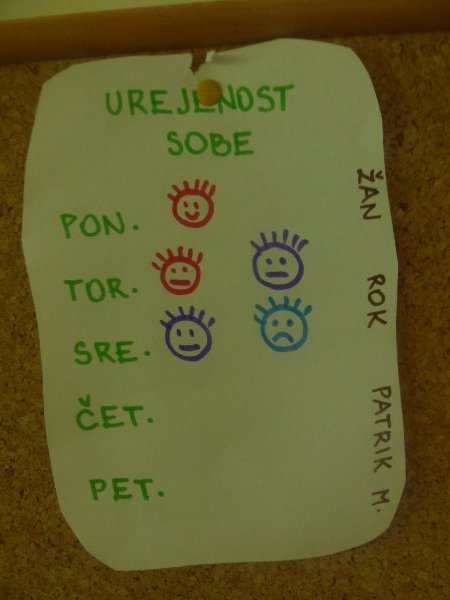 UREJENOST
SOBE
PON.
TOR.
SRE.
ČET.
PET.
ŽAN ROK PATRIK M.